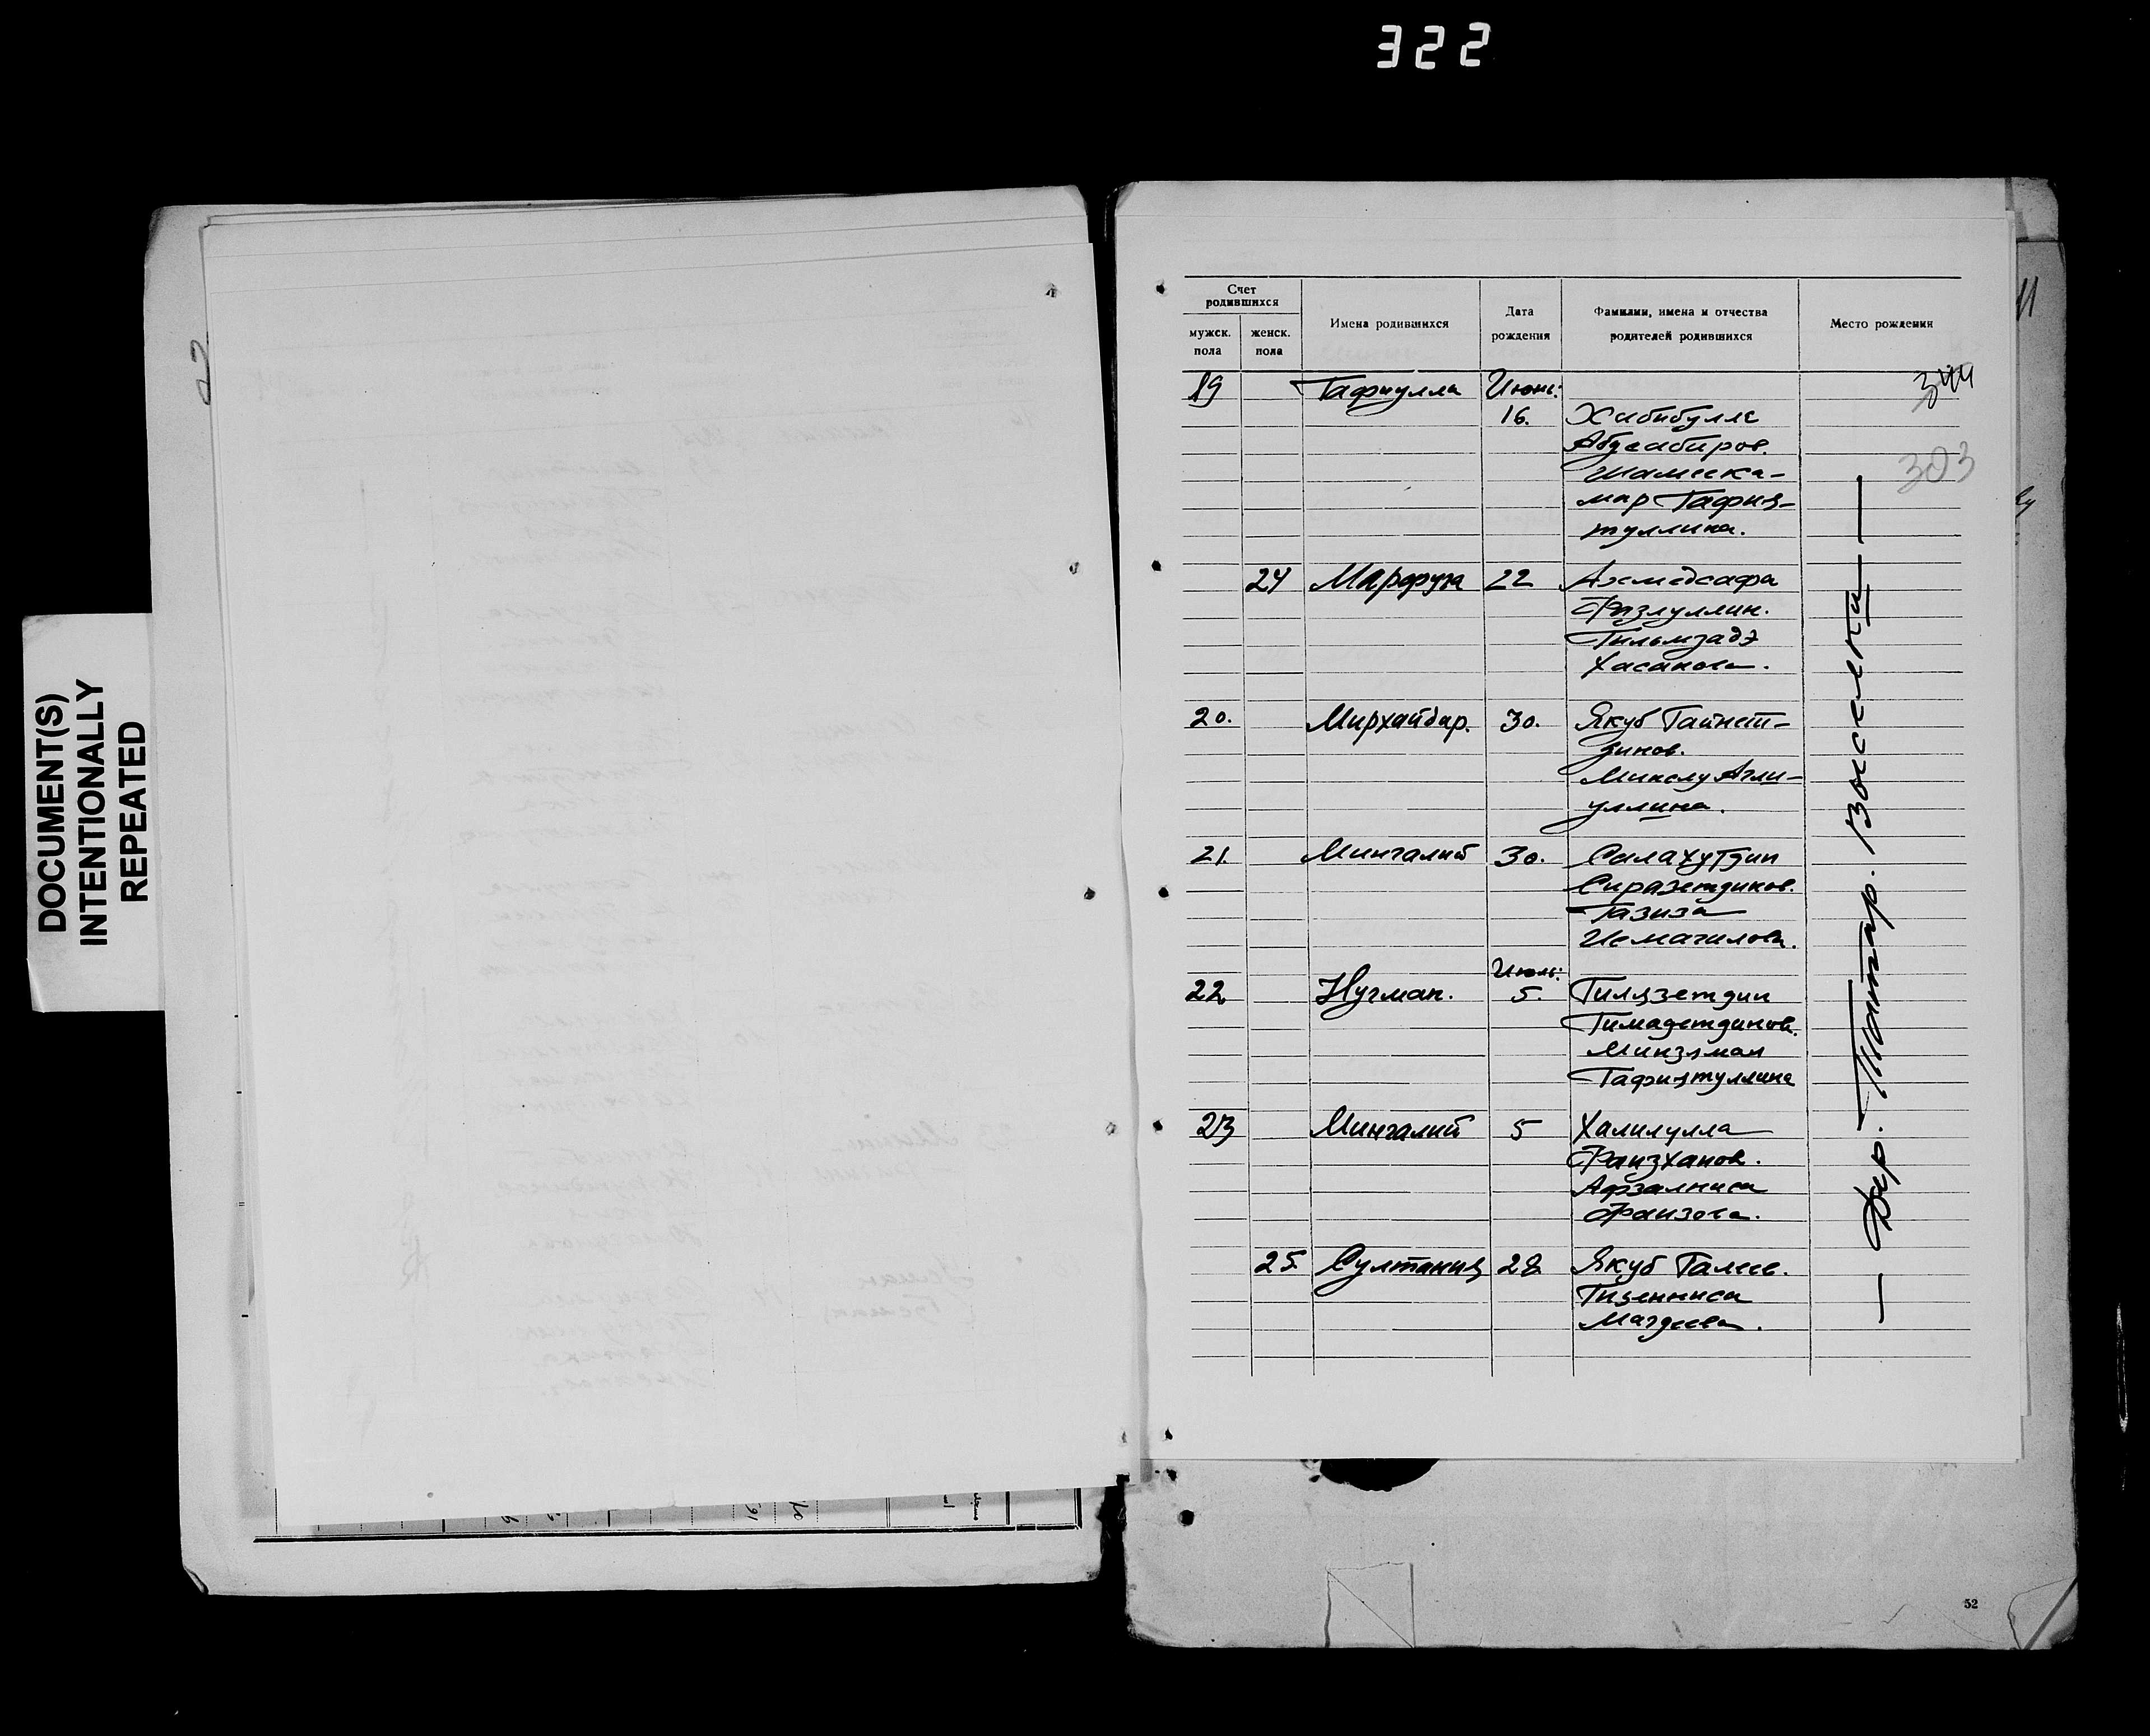 322
DOCUMENT(S)
INTENTIONALLY
REPEATED
Счет
родившихся
мужск.
пола
женск.
пола
Имена родившихся
Дата
рождения
Фамилии, имена и отчества
родителей родившихся
Место рождения
344
303
19 Гафиулла Июнь:
16. Хабибулла
Абдсабиров.
Шамска-
мар Гафия-
туллина.
24 Марфуга 22 Ахмедсафа
Фазлуллин.
Гильмзадэ
Хасанова.
20. Мирхайдар. 30. Якуб Гайнет-
динов.
Минслу Агли-
уллина.
21. Мингалий 30. Салахутдин
Сиразетдинов.
Газиза
Исмагилова.
Июль:
22 Нугман. 5. Гилязетдин
Гимадетдинов.
Минзямал
Гафиятуллина
23 Мингалий 5 Халилулла
Фаизханов.
Афзалниса
Фаизова.
25. Султания 28 Якуб Галеев.
Гизенниса
Магдеева.
— Дер. Татар. Выселки —
52